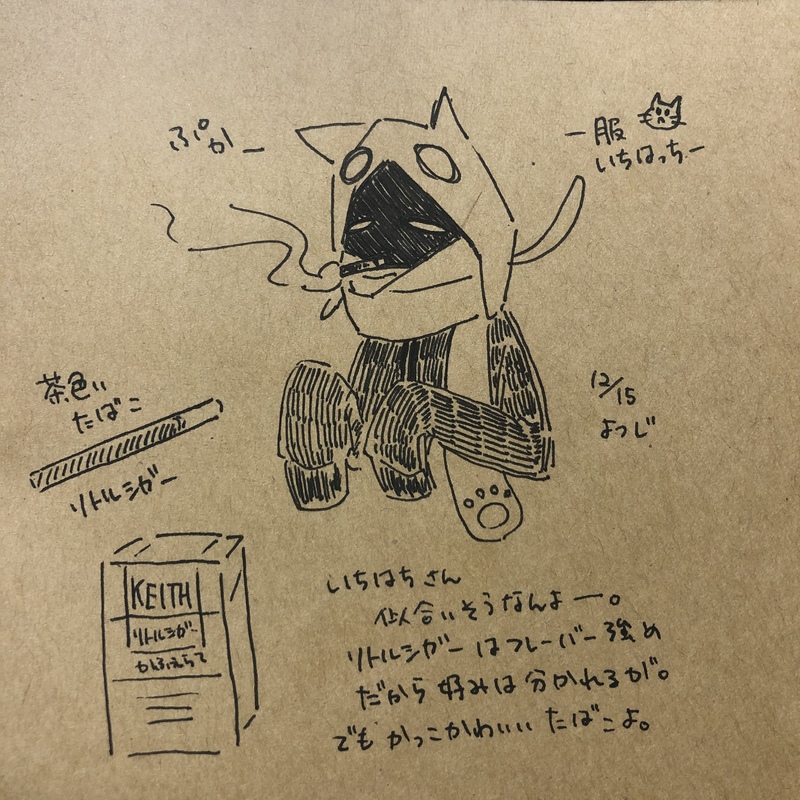 ぷかー
一服
いちはっちー
茶色い
たばこ
リトルシガー
12/15
よつじ
KEITH
リトルシガー
いちはちさん
似合いそうなんよー。
リトルシガーはフレーバー強め
だから好みは分かれるが。
でもかっこかわいいたばこよ。